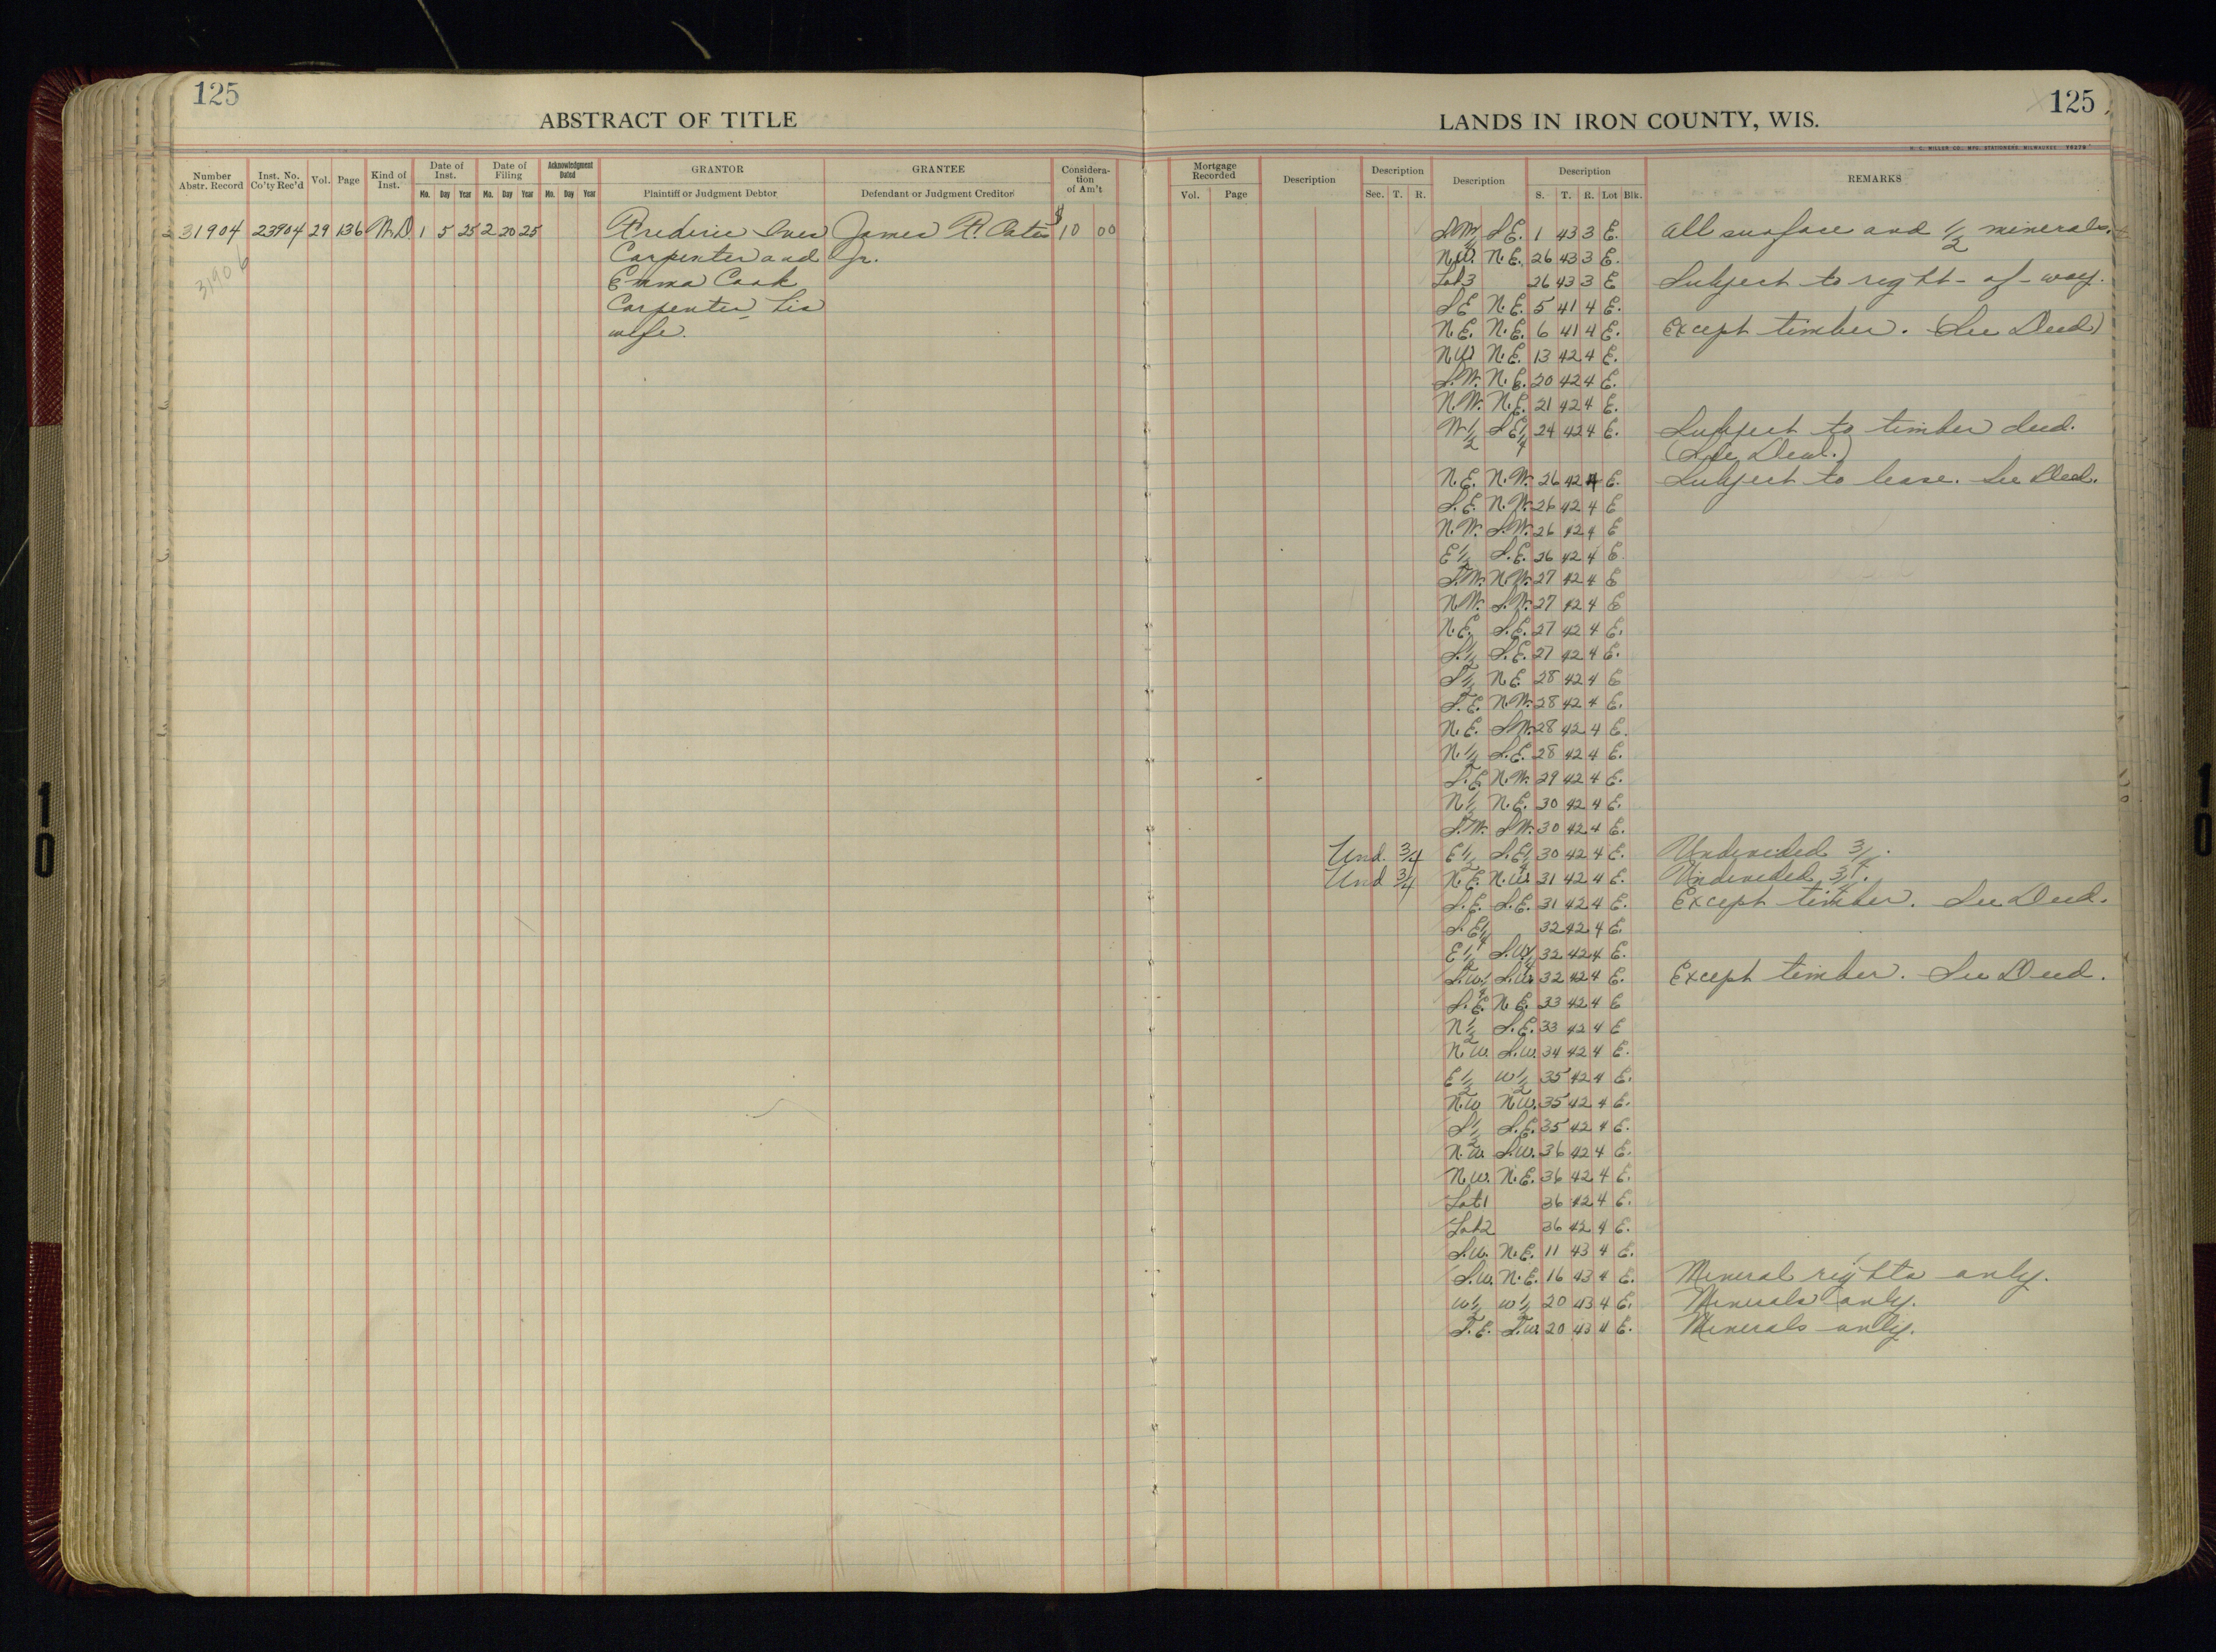 125
ABSTRACT OF TITLE
LANDS IN IRON COUNTY, WIS.
125
H. C. MILLER CO., MFG. STATIONERS, MILWAUKEE
Number Abstr. Record
Inst. No. Co'ty Rec'd
Vol.
Page
Kind of Inst.
Date of Inst.
Mo. Day Year
Date of Filing
Mo. Day Year
Acknowledgment Dated
Mo. Day Year
GRANTOR
Plaintiff or Judgment Debtor
GRANTEE
Defendant or Judgment Creditor
Consideration of Am't
Mortgage Recorded
Vol. Page
Description
Description
Sec. T. R.
Description
Description
S. T. R. Lot Blk.
REMARKS
31904 23904 29 136 W.D. 1 5 25 2 20 25 Frederic Ives James R. Oates $10 00
Carpenter and Jr.
Emma Cook
Carpenter his
wife.
31906
S.W. S.E. 1 43 3 E. All surface and 1/2 minerals.
N.W. N.E. 26 43 3 E.
Lot 3 26 43 3 E Subject to right-of-way.
S.E. N.E. 5 41 4 E.
N.E. N.E. 6 41 4 E. Except timber. (See Deed)
N.W. N.E. 13 42 4 E.
S.W. N.E. 20 42 4 E.
N.W. N.E. 21 42 4 E.
W 1/2 S.E. 1/4 24 42 4 E. Subject to timber deed.
(See Deed.)
N.E. N.W. 26 42 4 E. Subject to lease. See Deed.
S.E. N.W. 26 42 4 E
N.W. S.W. 26 42 4 E
E 1/2 S.E. 26 42 4 E.
S.W. N.W. 27 42 4 E
N.W. S.W. 27 42 4 E
N.E. S.E. 27 42 4 E.
S. 1/2 S.E. 27 42 4 E.
S 1/2 N.E. 28 42 4 E
S.E. N.W. 28 42 4 E.
N.E. S.W. 28 42 4 E.
N. 1/2 S.E. 28 42 4 E.
S.E. N.W. 29 42 4 E.
N 1/2 N.E. 30 42 4 E.
S.W. S.W. 30 42 4 E.
Und. 3/4 E 1/2 S.E. 1/4 30 42 4 E. Undivided 3/4.
Und 3/4 N.E. N.W. 31 42 4 E. Undivided 3/4.
S.E. S.E. 31 42 4 E. Except timber. See Deed.
S.E. 1/4 32 42 4 E.
E 1/2 S.W. 1/4 32 42 4 E.
S.W. 1/4 S.W. 32 42 4 E. Except timber. See Deed.
S.E. N.E. 33 42 4 E
N 1/2 S.E. 33 42 4 E
N.W. S.W. 34 42 4 E.
E 1/2 W 1/2 35 42 4 E.
N.W N.W. 35 42 4 E.
S 1/2 S.E. 35 42 4 E.
N.W. S.W. 36 42 4 E.
N.W. N.E. 36 42 4 E.
Lot 1 36 42 4 E.
Lot 2 36 42 4 E.
S.W. N.E. 11 43 4 E.
S.W. N.E. 16 43 4 E. Mineral rights only.
W 1/2 W 1/2 20 43 4 E. Minerals only.
S.E. S.W. 20 43 4 E. Minerals only.
10
10